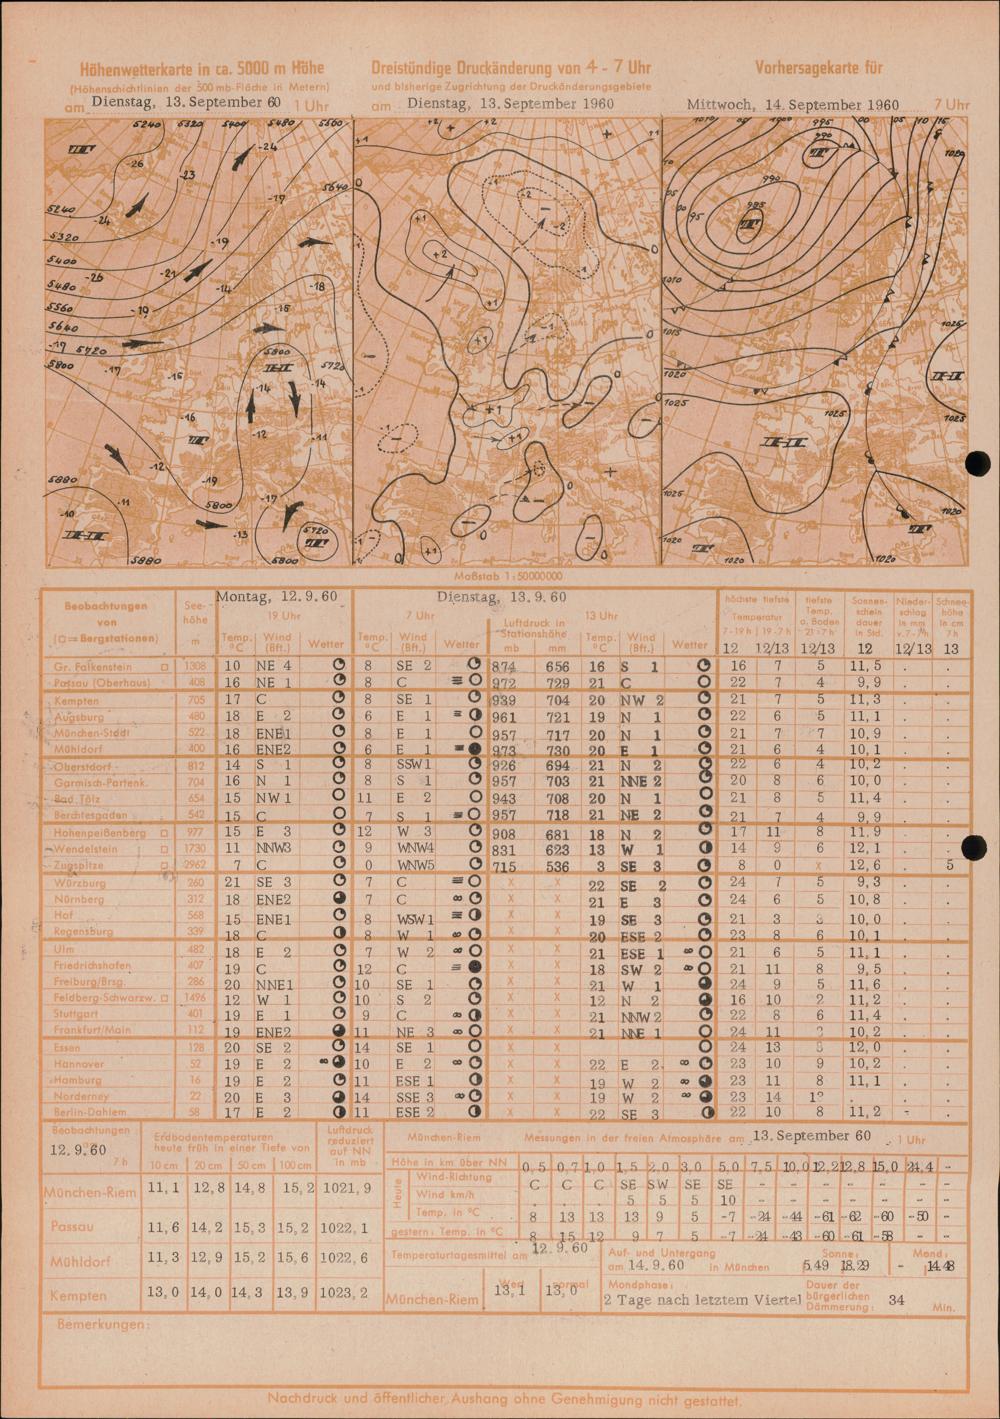 Höhenwetterkarte in ca. 5000 m Höhe
(Höhenschichtlinien der 500 mb-Fläche in Metern)
am Dienstag, 13. September 60 1 Uhr
Dreistündige Druckänderung von 4 - 7 Uhr
und bisherige Zugrichtung der Druckänderungsgebiete
am Dienstag, 13. September 1960
Vorhersagekarte für
Mittwoch, 14. September 1960 7 Uhr
5240 5320 5400 5480 5560
5640
5240
5320
5400
5480
5560
5640
5720
5800
5800
5720
5800
5880
5880
5800
5720
990
985
995
990
1010
1015
1020
1025
1025
1025
1025
1020
1020
1020
1020
Maßstab 1:50000000
Beobachtungen von (□ = Bergstationen)
See-höhe m
Montag, 12.9.60
19 Uhr
Temp. °C Wind (Bft.) Wetter
Dienstag, 13.9.60
7 Uhr
Temp. °C Wind (Bft.) Wetter
13 Uhr
Luftdruck in Stationshöhe mb mm
Temp. °C Wind (Bft.) Wetter
höchste tiefste Temperatur 7-19h 19-7h
12 12/13
tiefste Temp. a. Boden 21-7h
12/13
Sonnen-schein dauer in Std.
12
Nieder-schlag in mm v. 7-7h
12/13
Schnee-höhe in cm 7h
13
Gr. Falkenstein □ 1308 10 NE 4 8 SE 2 874 656 16 S 1 16 7 5 11,5 .
Passau (Oberhaus) 408 16 NE 1 8 C 972 729 21 C 22 7 4 9,9 .
Kempten 705 17 C 8 SE 1 939 704 20 NW 2 21 7 5 11,3 .
Augsburg 480 18 E 2 6 E 1 961 721 19 N 1 22 6 5 11,1 .
München-Stadt 522 18 ENE1 8 E 1 957 717 20 N 1 21 7 7 10,9 .
Mühldorf 400 16 ENE2 6 E 1 973 730 20 E 1 21 6 4 10,1 .
Oberstdorf 812 14 S 1 8 SSW1 926 694 21 N 2 22 6 4 10,2 .
Garmisch-Partenk. 704 16 N 1 8 S 1 957 703 21 NNE 2 20 8 6 10,0 .
Bad Tölz 654 15 NW 1 11 E 2 943 708 20 N 1 21 8 5 11,4 .
Berchtesgaden 542 15 C 7 S 1 957 718 21 NE 2 21 7 4 9,9 .
Hohenpeißenberg □ 977 15 E 3 12 W 3 908 681 18 N 2 17 11 8 11,9 .
Wendelstein □ 1730 11 NNW3 9 WNW4 831 623 13 W 1 14 9 6 12,1 .
Zugspitze □ 2962 7 C 0 WNW5 715 536 3 SE 3 8 0 x 12,6 . 5
Würzburg 260 21 SE 3 7 C X X 22 SE 2 24 7 5 9,3 .
Nürnberg 312 18 ENE2 7 C X X 21 E 3 24 6 5 10,8 .
Hof 568 15 ENE1 8 WSW1 X X 19 SE 3 21 3 10,0 .
Regensburg 339 18 C 8 W 1 X X 20 ESE 2 23 8 6 10,1 .
Ulm 482 18 E 2 7 W 2 X X 21 ESE 1 21 6 5 11,1 .
Friedrichshafen 407 19 C 12 C X X 18 SW 2 21 11 8 9,5 .
Freiburg/Brsg. 286 20 NNE1 10 SE 1 X X 21 W 1 24 9 5 11,6 .
Feldberg-Schwarzw. □ 1496 12 W 1 10 S 2 X X 12 N 2 16 10 2 11,2 .
Stuttgart 401 19 E 1 9 C X X 21 NNW2 22 8 6 11,4 .
Frankfurt/Main 112 19 ENE2 11 NE 3 X X 21 NNE 1 24 11 10,2 .
Essen 128 20 SE 2 14 SE 1 X X 24 13 12,0 .
Hannover 52 19 E 2 10 E 2 X X 22 E 2 23 10 9 10,2 .
Hamburg 16 19 E 2 11 ESE 1 X X 19 W 2 23 11 8 11,1 .
Norderney 22 20 E 3 14 SSE 3 X X 19 W 2 23 14 . .
Berlin-Dahlem 58 17 E 2 11 ESE 2 X X 22 SE 3 22 10 8 11,2 -
Beobachtungen 12.9.60 7 h
Erdbodentemperaturen heute früh in einer Tiefe von
10 cm 20 cm 50 cm 100 cm
Luftdruck reduziert auf NN in mb
München-Riem 11,1 12,8 14,8 15,2 1021,9
Passau 11,6 14,2 15,3 15,2 1022,1
Mühldorf 11,3 12,9 15,2 15,6 1022,6
Kempten 13,0 14,0 14,3 13,9 1023,2
München-Riem Messungen in der freien Atmosphäre am 13. September 60, 1 Uhr
Höhe in km über NN 0,5 0,7 1,0 1,5 2,0 3,0 5,0 7,5 10,0 12,2 12,8 15,0 24,4 -
Heute
Wind-Richtung C C C SE SW SE SE - - - - - - -
Wind km/h . . . 5 5 5 10 - - - - - - -
Temp. in °C 8 13 13 13 9 5 -7 -24 -44 -61 -62 -60 -50 -
gestern: Temp. in °C 8 15 12 9 7 -7 -24 -43 -60 -61 -58
Temperaturtagesmittel am 12.9.60
München-Riem 13,1 normal 13,0
Auf- und Untergang am 14.9.60 in München
Sonne: 5.49 18.29
Mond: - 14.48
Mondphase: 2 Tage nach letztem Viertel
Dauer der bürgerlichen Dämmerung: 34 Min.
Bemerkungen:
Nachdruck und öffentlicher Aushang ohne Genehmigung nicht gestattet.